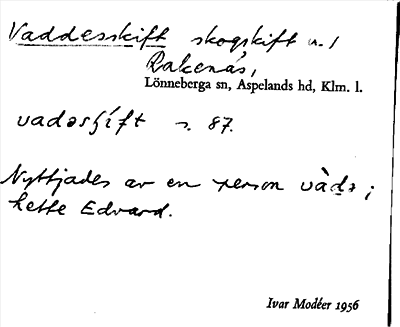 Vaddesskift skogskift n. l
Rakenäs,
Lönneberga sn, Aspelands hd, Klm. l.
vadəsʃift s. 87.
Nyttjades av en person vàdə ;
hette Edvard.
Ivar Modéer 1956